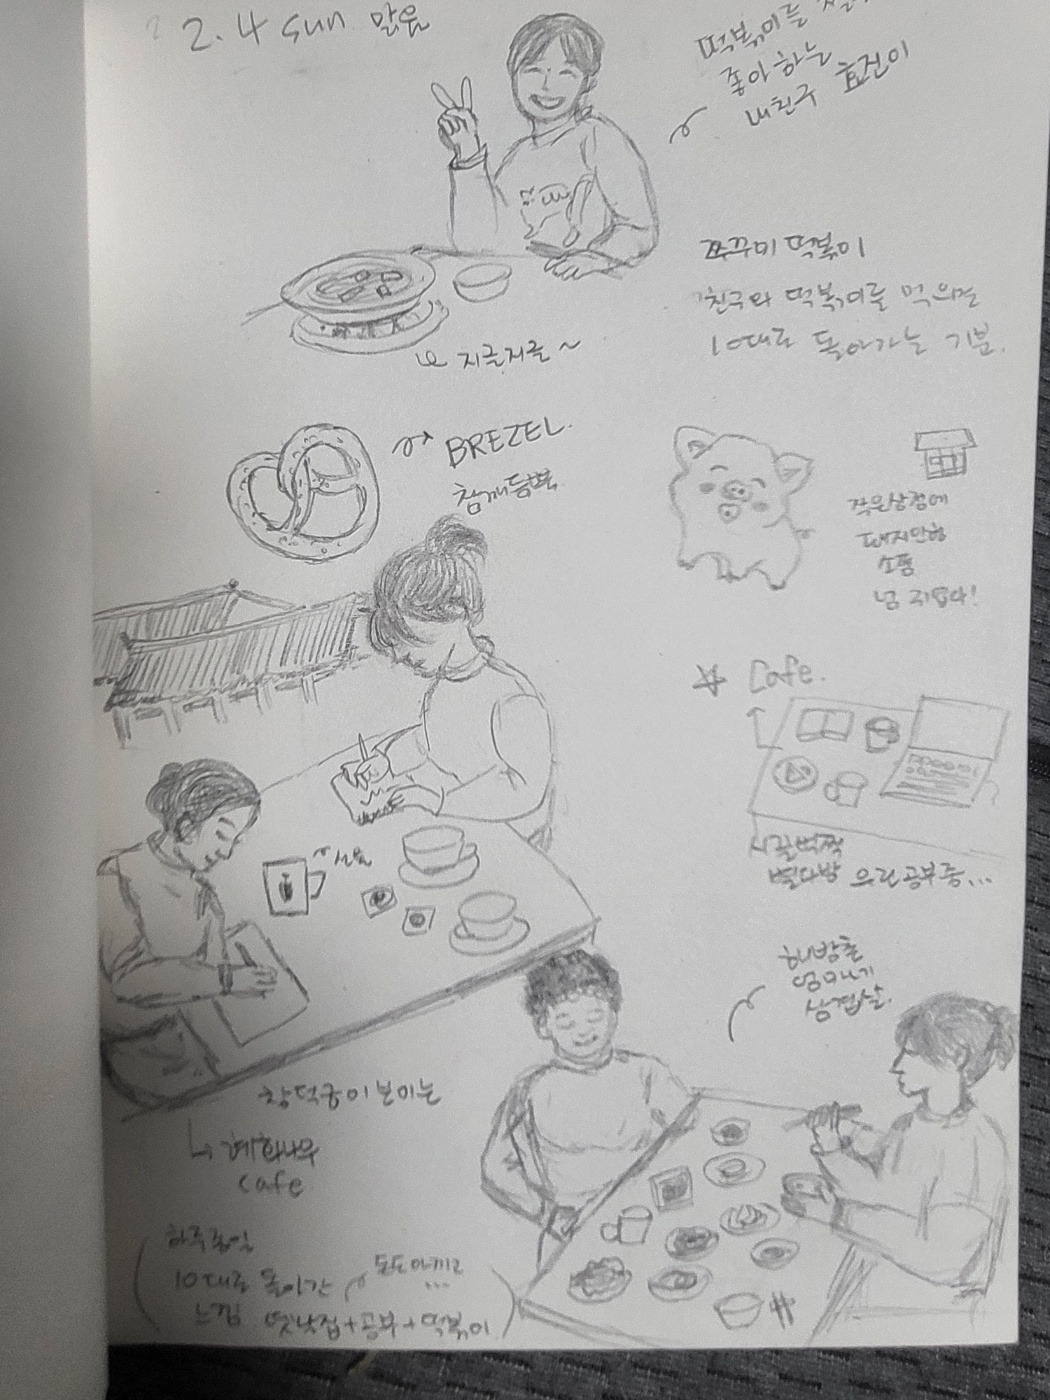 2. 4 sun 맑음
떡볶이를
좋아하는
내친구 효진이
쭈꾸미 떡볶이
친구와 떡볶이를 먹으면
10대로 돌아가는 기분.
지글지글~
BREZEL.
참깨듬뿍
작은상점에
돼지인형
소품
넘 귀엽다!
☆ Cafe.
시끌벅쩍
별다방 우린공부중...
해방촌
삼겹살.
창덕궁이보이는
↳ 회화나무
cafe
하루종일
10대로 돌아간
느낌
돈도아끼고
...
옛낫집+공부+떡볶이